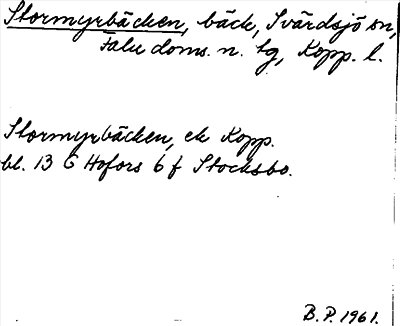 Stormyrbäcken, bäck, Svärdsjö sn,
Falu doms. n. tg, Kopp. l.
Stormyrbäcken, ek Kopp.
bl. 13 G Hofors 6 f Stocksbo.
B. P. 1961.